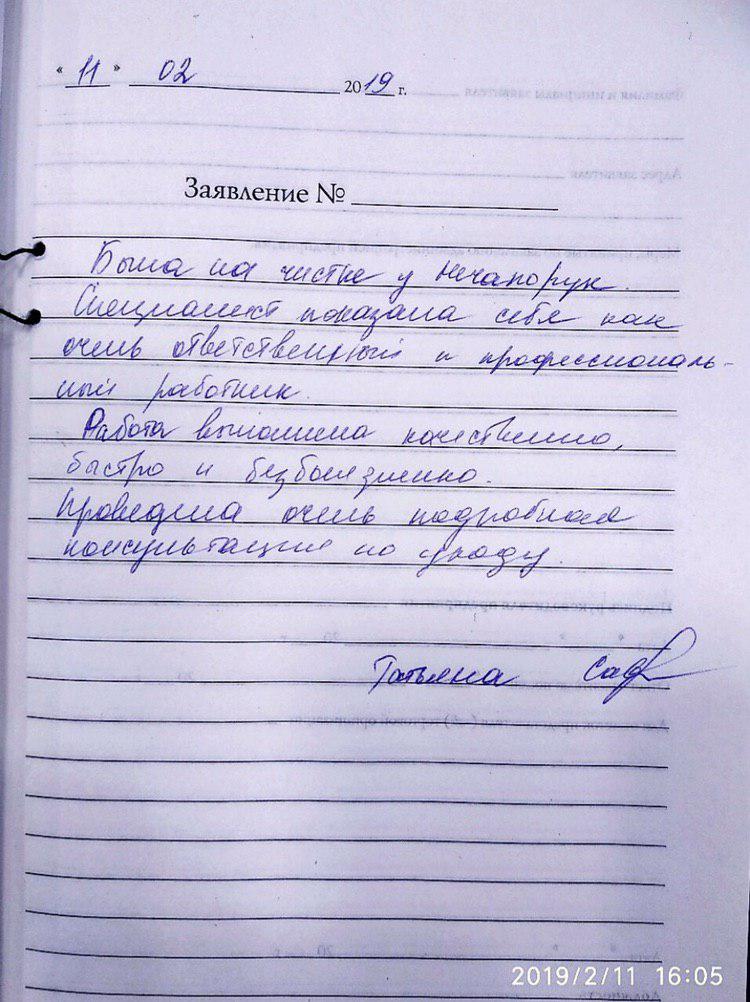 « 11 » 02 2019 г.
Заявление №
Была на чистке у Нечапорук.
Специалист показала себя как
очень ответственный и профессиональ-
ный работник.
Работа выполнена качественно,
быстро и безболезненно.
Проведена очень подробная
консультация по уходу.
Татьяна
2019/2/11 16:05